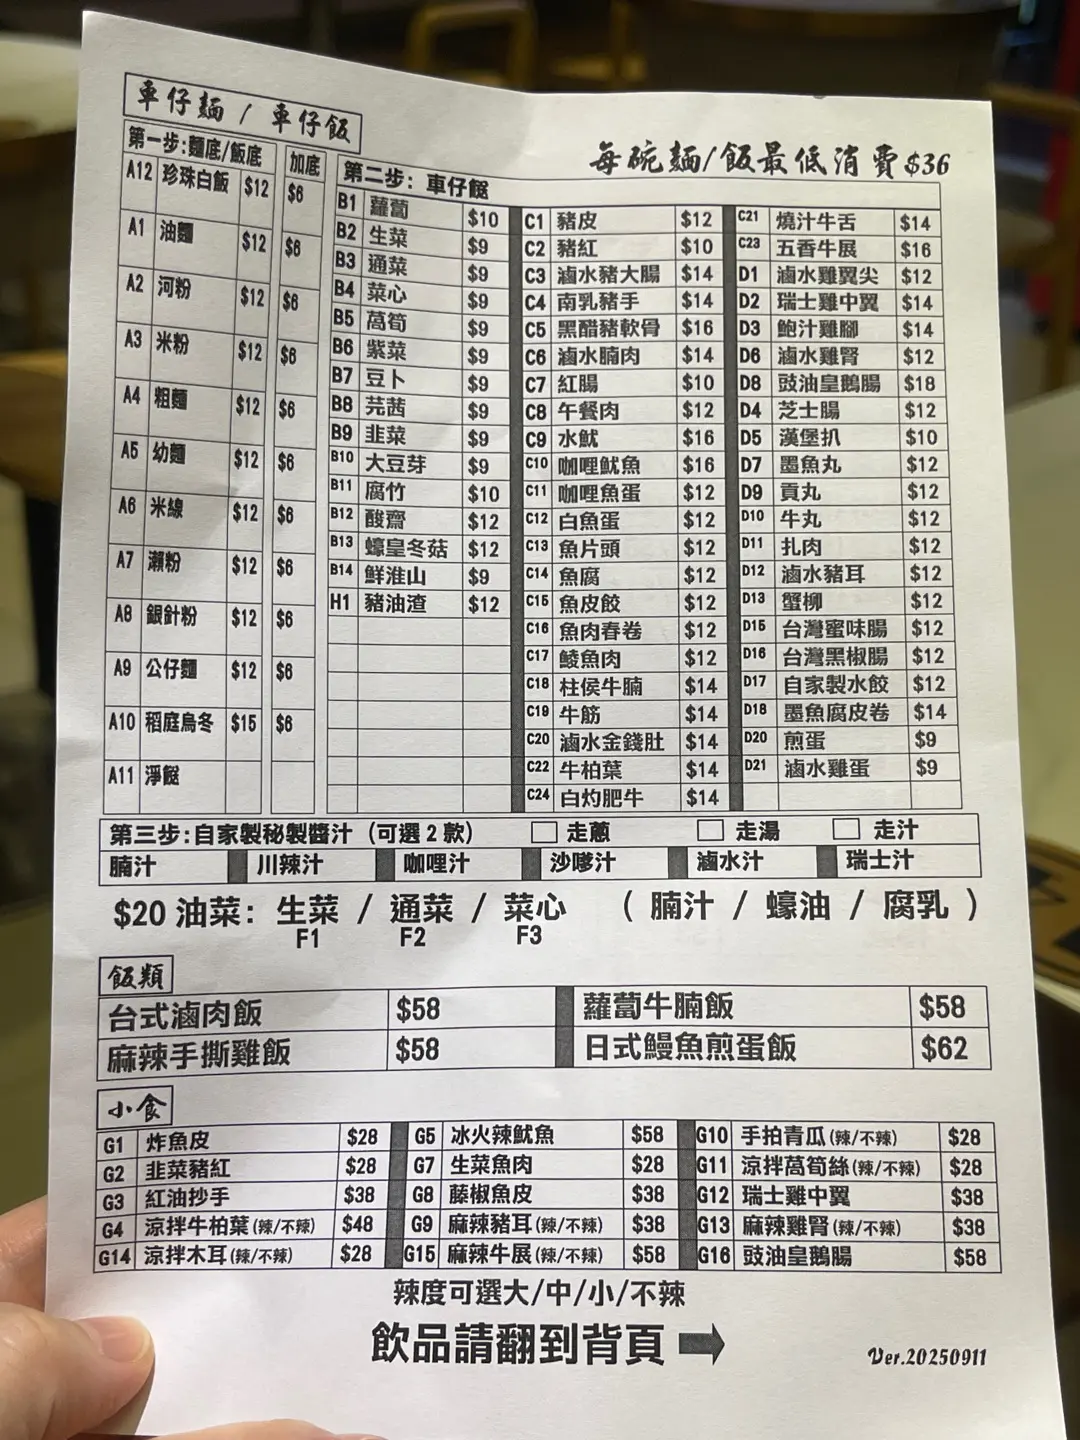 車仔麵 / 車仔飯
每碗麵/飯最低消費$36
第一步:麵底/飯底 加底
A12 珍珠白飯 $12 $6
A1 油麵 $12 $6
A2 河粉 $12 $6
A3 米粉 $12 $6
A4 粗麵 $12 $6
A5 幼麵 $12 $6
A6 米線 $12 $6
A7 瀨粉 $12 $6
A8 銀針粉 $12 $6
A9 公仔麵 $12 $6
A10 稻庭烏冬 $15 $6
A11 淨餸
第二步: 車仔餸
B1 蘿蔔 $10
B2 生菜 $9
B3 通菜 $9
B4 菜心 $9
B5 萵筍 $9
B6 紫菜 $9
B7 豆卜 $9
B8 芫茜 $9
B9 韭菜 $9
B10 大豆芽 $9
B11 腐竹 $10
B12 酸齋 $12
B13 蠔皇冬菇 $12
B14 鮮淮山 $9
H1 豬油渣 $12
C1 豬皮 $12
C2 豬紅 $10
C3 滷水豬大腸 $14
C4 南乳豬手 $14
C5 黑醋豬軟骨 $16
C6 滷水腩肉 $14
C7 紅腸 $10
C8 午餐肉 $12
C9 水魷 $16
C10 咖喱魷魚 $16
C11 咖喱魚蛋 $12
C12 白魚蛋 $12
C13 魚片頭 $12
C14 魚腐 $12
C15 魚皮餃 $12
C16 魚肉春卷 $12
C17 鯪魚肉 $12
C18 柱侯牛腩 $14
C19 牛筋 $14
C20 滷水金錢肚 $14
C22 牛柏葉 $14
C24 白灼肥牛 $14
C21 燒汁牛舌 $14
C23 五香牛展 $16
D1 滷水雞翼尖 $12
D2 瑞士雞中翼 $14
D3 鮑汁雞腳 $14
D6 滷水雞腎 $12
D8 豉油皇鵝腸 $18
D4 芝士腸 $12
D5 漢堡扒 $10
D7 墨魚丸 $12
D9 貢丸 $12
D10 牛丸 $12
D11 扎肉 $12
D12 滷水豬耳 $12
D13 蟹柳 $12
D15 台灣蜜味腸 $12
D16 台灣黑椒腸 $12
D17 自家製水餃 $12
D18 墨魚腐皮卷 $14
D20 煎蛋 $9
D21 滷水雞蛋 $9
第三步:自家製秘製醬汁 (可選2款) 走蔥 走湯 走汁
腩汁 川辣汁 咖喱汁 沙嗲汁 滷水汁 瑞士汁
$20 油菜: 生菜 / 通菜 / 菜心 ( 腩汁 / 蠔油 / 腐乳 )
F1 F2 F3
飯類
台式滷肉飯 $58 蘿蔔牛腩飯 $58
麻辣手撕雞飯 $58 日式鰻魚煎蛋飯 $62
小食
G1 炸魚皮 $28 G5 冰火辣魷魚 $58 G10 手拍青瓜(辣/不辣) $28
G2 韭菜豬紅 $28 G7 生菜魚肉 $28 G11 涼拌萵筍絲(辣/不辣) $28
G3 紅油抄手 $38 G8 藤椒魚皮 $38 G12 瑞士雞中翼 $38
G4 涼拌牛柏葉(辣/不辣) $48 G9 麻辣豬耳(辣/不辣) $38 G13 麻辣雞腎(辣/不辣) $38
G14 涼拌木耳(辣/不辣) $28 G15 麻辣牛展(辣/不辣) $58 G16 豉油皇鵝腸 $58
辣度可選大/中/小/不辣
飲品請翻到背頁
Ver.20250911